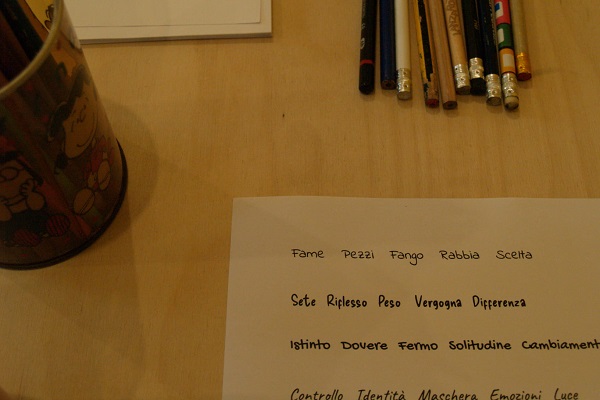 Fame Pezzi Fango Rabbia Scelta
Sete Riflesso Peso Vergogna Differenza
Istinto Dovere Fermo Solitudine Cambiament
Controllo Identità Maschera Emozioni Luce